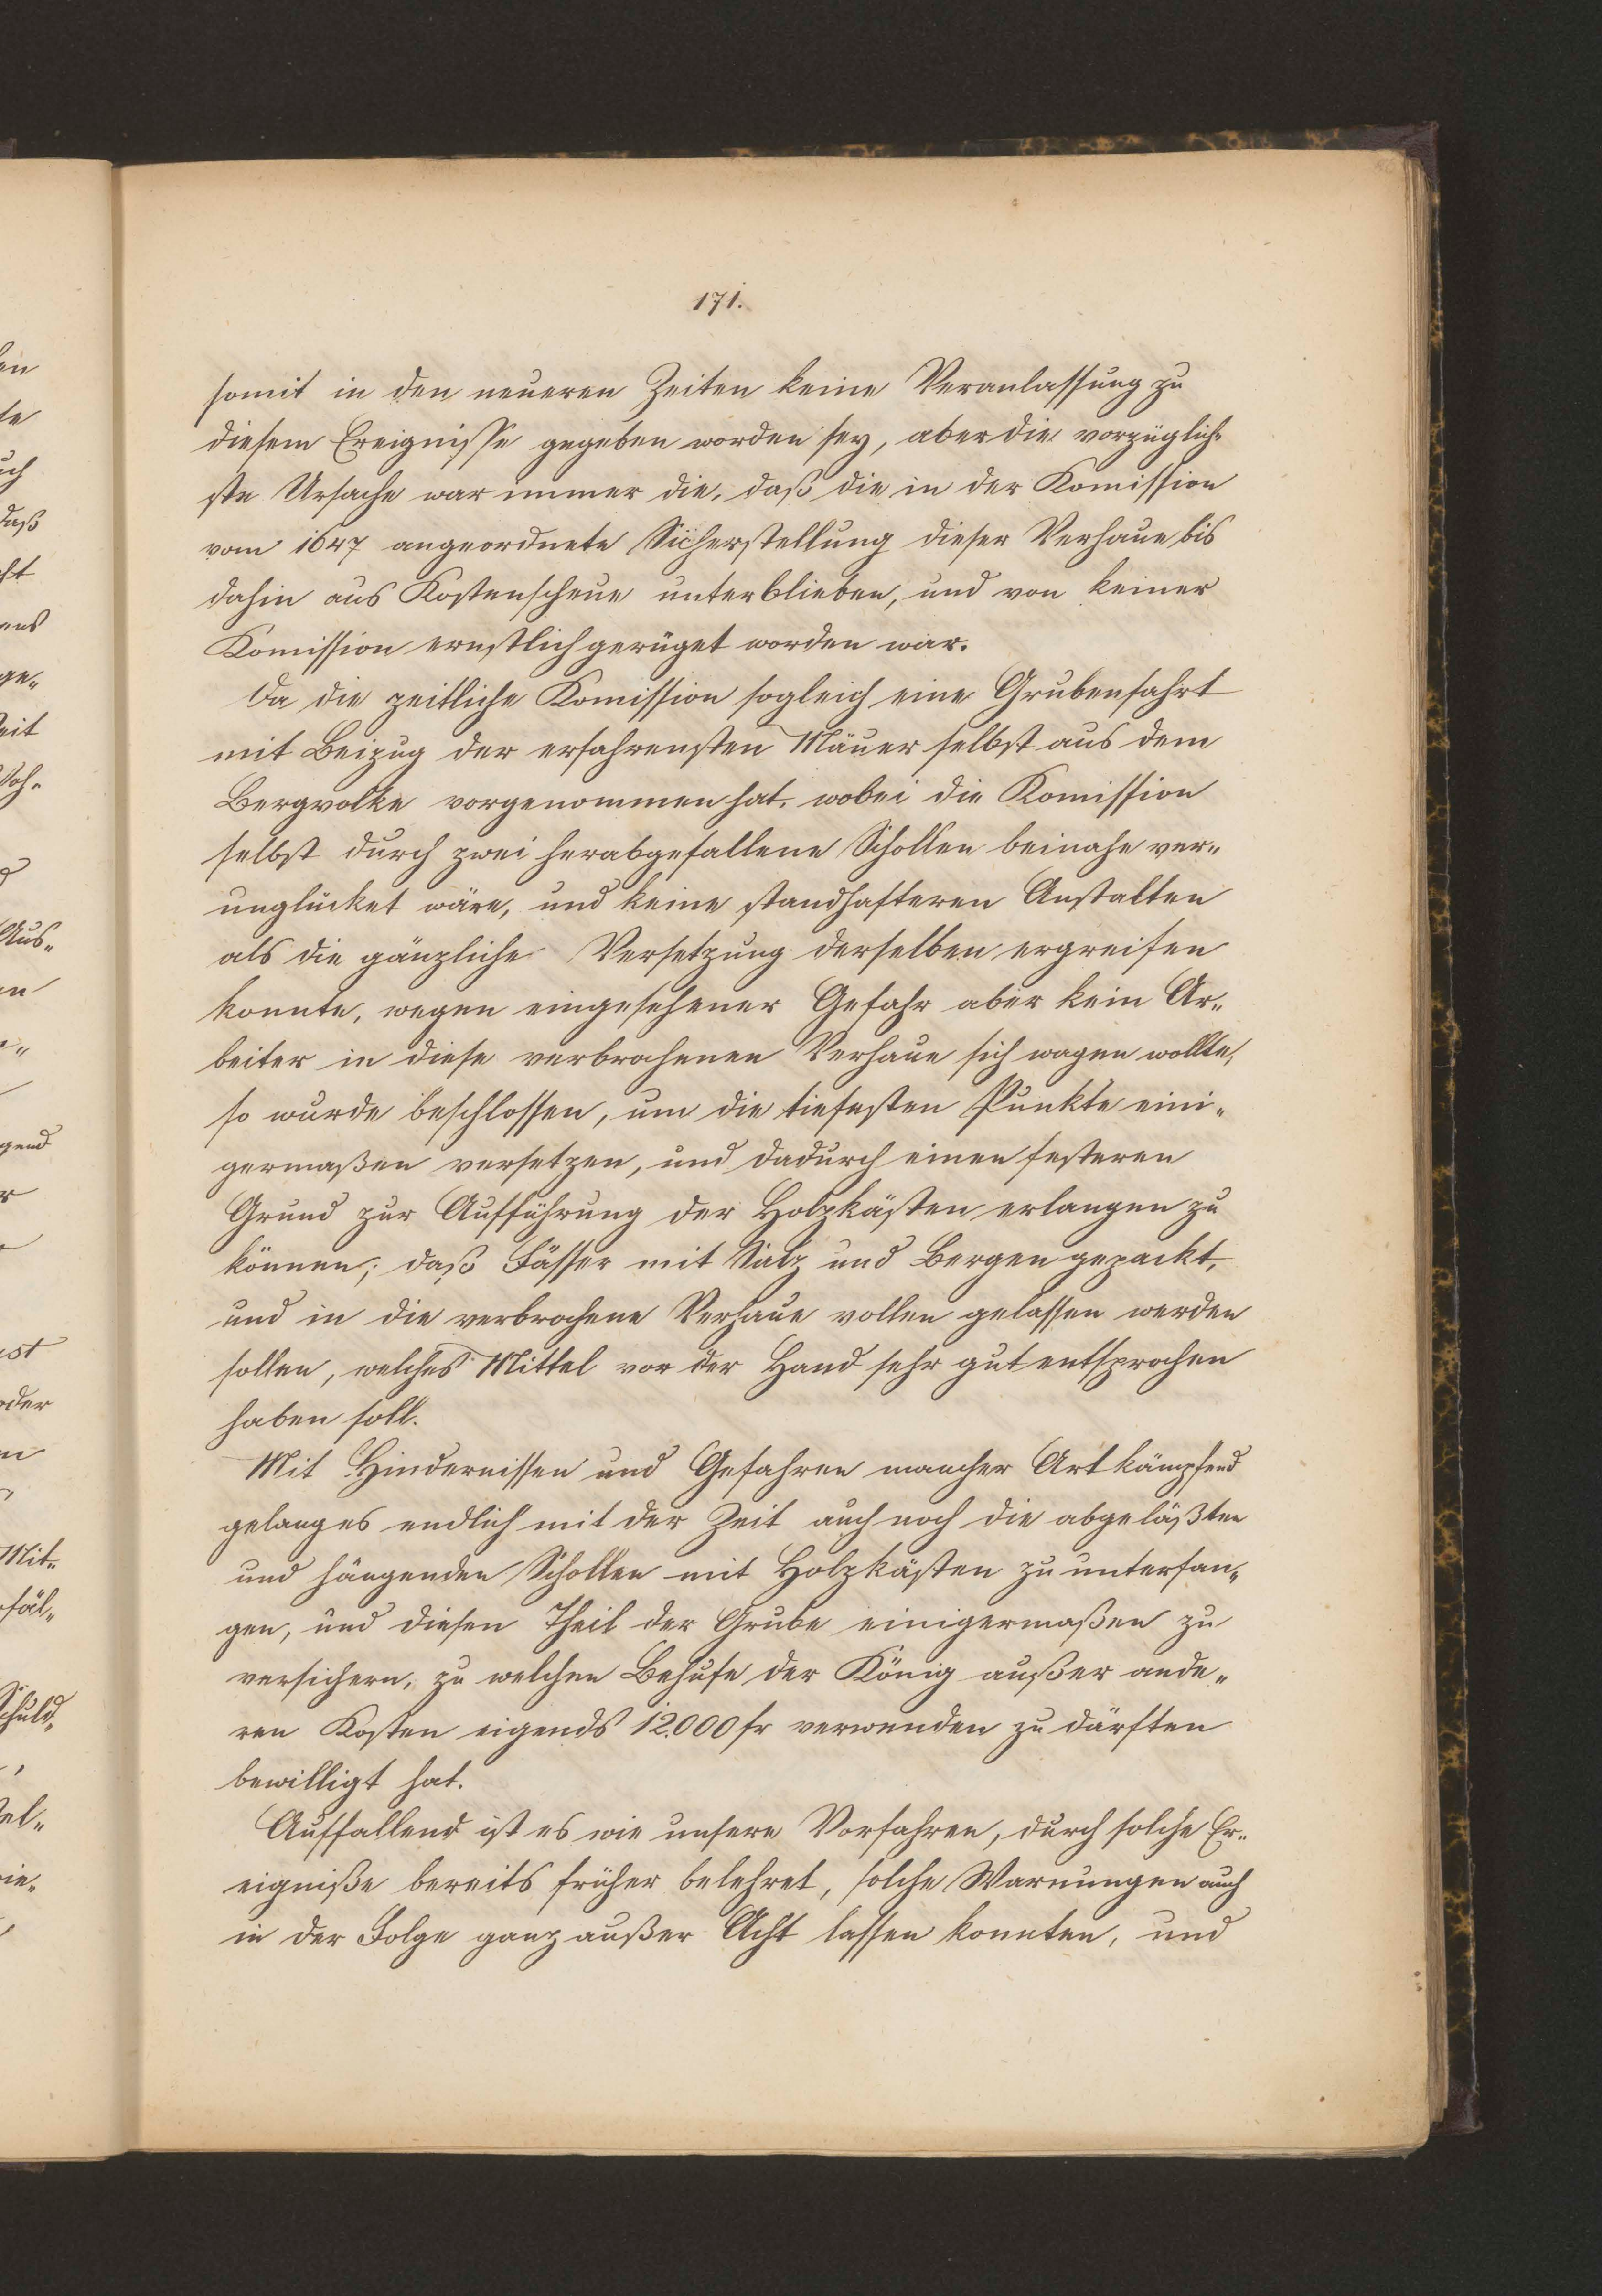 171.
somit in den neueren Zeiten keine Veranlassung zu
diesem Ereignisse gegeben worden sey, aber die vorzüglich-
ste Ursache war immer die, daß die in der Komission
vom 1647 angeordnete Sicherstellung dieser Verhaue bis
dahin aus Kostenscheue unterblieben, und von keiner
Komission ernstlich gerüget worden war.
Da die zeitliche Komission sogleich eine Grubenfahrt
mit Beizug der erfahrensten Mäuer selbst aus dem
Bergvolke vorgenommen hat, wobei die Komission
selbst durch zwei herabgefallene Schollen beinahe ver-
unglücket wäre, und keine standhafteren Anstalten
als die gänzliche Versetzung derselben ergreifen
konnte, wegen eingesehener Gefahr aber kein Ar-
beiter in diese verbrochenen Verhaue sich wagen wollte,
so wurde beschlossen, um die tiefesten Punkte eini-
germaßen versetzen, und dadurch einen festeren
Grund zur Aufführung der Holzkästen erlangen zu
können; daß Fässer mit Salz und Bergen gepackt,
und in die verbrochene Verhaue rollen gelassen werden
sollen, welches Mittel vor der Hand sehr gut entsprochen
haben soll.
Mit Hindernissen und Gefahren mancher Art kämpfend
gelang es endlich mit der Zeit auch noch die abgelößten
und hängenden Schollen mit Holzkästen zu unterfan-
gen, und diesen Theil der Grube einigermaßen zu
versichern, zu welchen Behufe der König außer ande-
ren Kosten eigends 12.000 fr verwenden zu därften
bewilligt hat.
Auffallend ist es wie unsere Vorfahren, durch solche Er-
eigniße bereits früher belehret, solche Warnungen auch
in der Folge ganz außer Acht lassen konnten, und